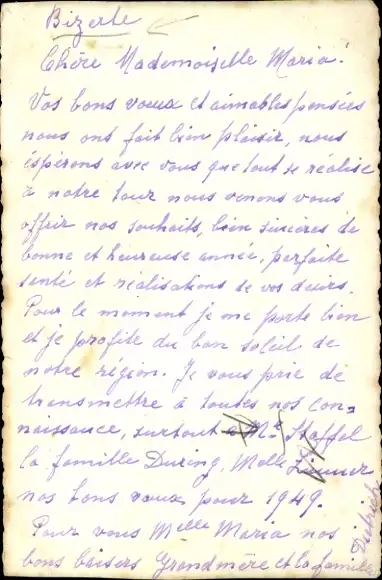 Bizerte
Chère Mademoiselle Maria!
Vos bons voeux et aimables pensées
nous ont fait bien plaisir, nous
éspérons avec vous que tout se réalise
à notre tour nous venons vous
offrir nos souhaits, bien sincères de
bonne et heureuse année, parfaite
santé et réalisations de vos désirs.
Pour le moment je me porte bien
et je profite du bon soleil de
notre région. Je vous prie de
transmettre à toutes nos con-
naissance, surtout Mr Staffel
la famille During, Melle
nos bons vœux pour 1949.
Pour vous Melle Maria nos
bons baisers Grandmère et la famille
Dietrich